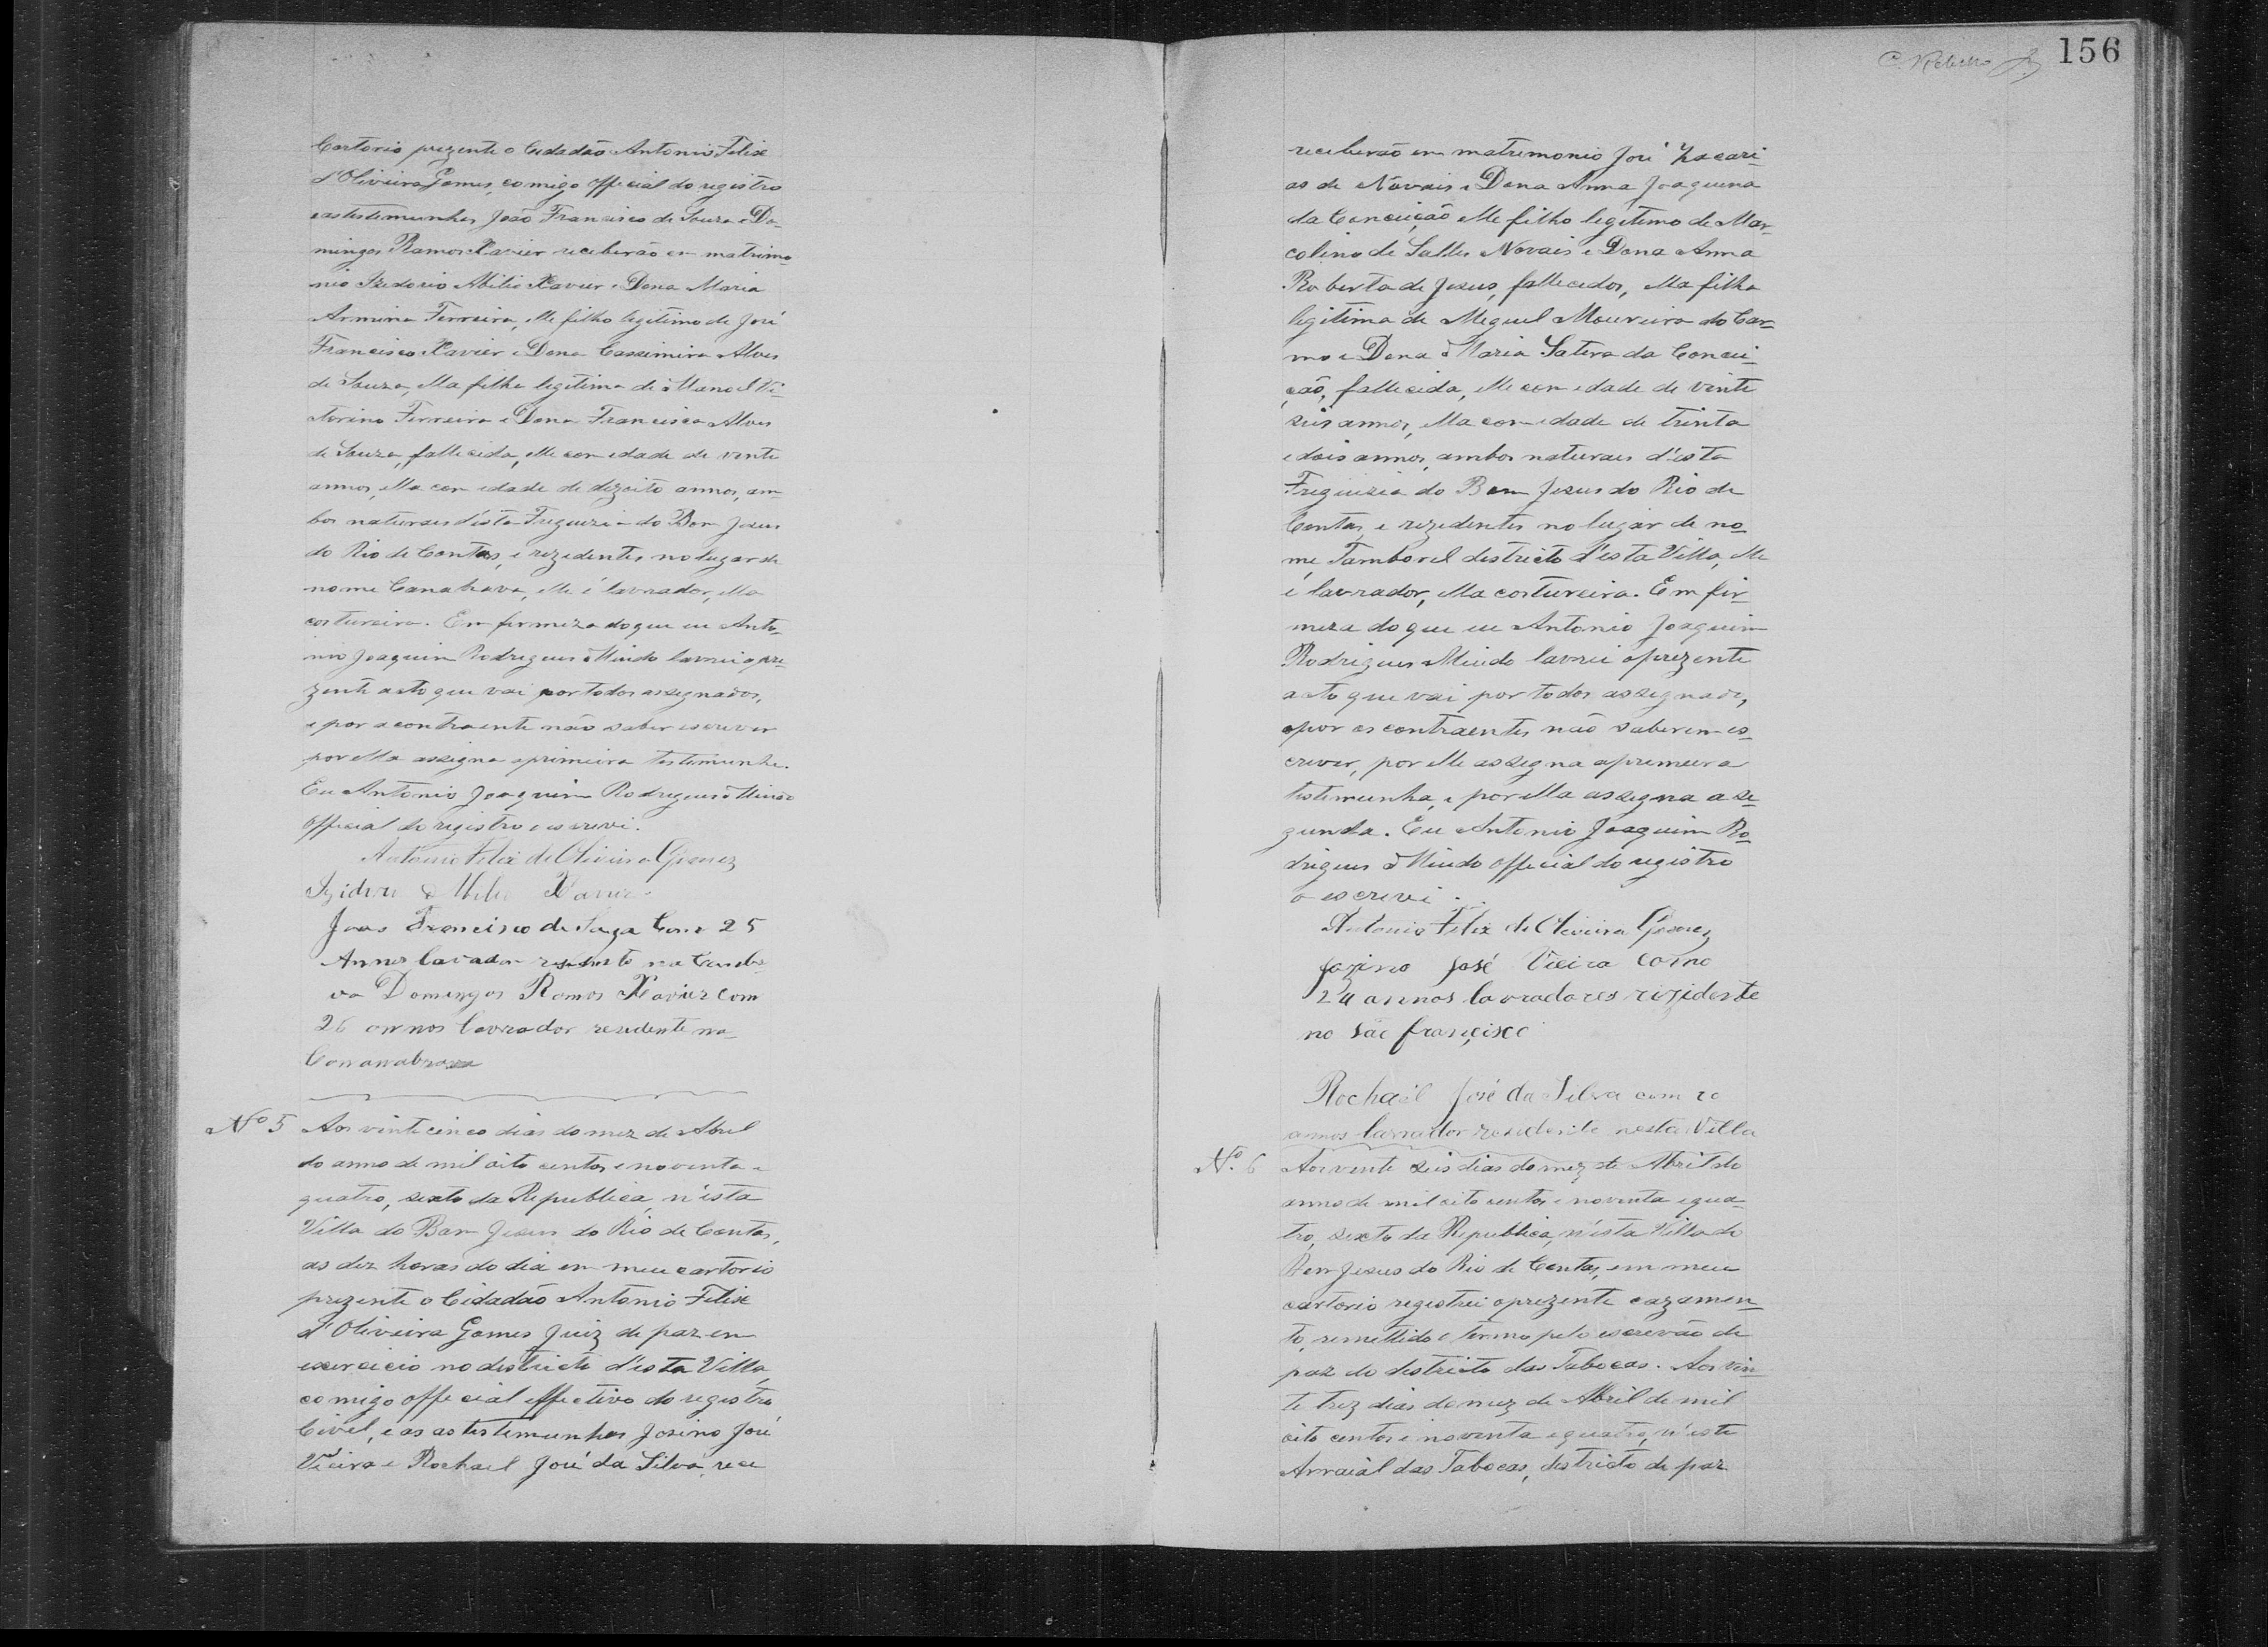 Cartorio prezente o Cidadão Antonio Felise
d'Oliveira Gomes, comigo official do registro
e as testemunhas João Francisco de Souza e Do-
mingos Ramos Xavier receberão em matrimo-
nio Izedorio Abilio Xavier e Dona Maria
Armina Ferreira, elle filho legitimo de José
Francisco Xavier e Dona Cassimira Alves
de Souza, ella filha legitima de Manoel Vi-
torino Ferreira e Dona Francisca Alves
de Souza, fallecida, elle com edade de vinte
annos, ella com edade de dezoito annos, am-
bos naturaes d'esta Freguezia do Bom Jesus
do Rio de Contas, e rezedentes no lugar de
nome Canabrava, elle é lavrador, ella
costureira. Em firmeza do que eu Anto-
nio Joaquim Rodrigues Mindo lavrei o pre-
zente acto que vai por todos assegnados,
e por a contraente não saber escrever
por ella assegna a primeira testemunha.
Eu Antonio Joaquim Rodrigues Mindo
official do registro o escrevi.
Antonio Felix de Oliveira Gomes
Xavier
João Francisco de Souza Com 25
Annos lavrador
va Domingos Ramos Xavier com
26 annos lavrador residente na
Cannabrava
Nº 5 Aos vinte cinco dias do mez de Abril
do anno de mil oito centos e noventa e
quatro, sexto da Republica, n'esta
Villa do Bom Jesus do Rio de Contas,
as dez horas do dia em meu cartorio
prezente o Cidadão Antonio Felise
d'Oliveira Gomes Juiz de paz em
exercicio no destricto d'esta Villa,
comigo official effectivo do registro
Civel, e as as testemunhas Josino José
Vieira e Rochael José da Silva, rece
C. Rebello 156
receberão em matremonio José Zacari-
as de Novais e Dona Anna Joaquina
da Conceição elle filho legitemo de Mar-
colino de Salles Novais e Dona Anna
Roberta de Jesus, fallecidos, ella filha
legitima de Meguel Moureira do Car-
mo e Dona Maria Satera da Concei-
ção, fallecida, elle com edade de vinte
seis annos, ella com edade de trinta
e dois annos, ambos naturaes d'esta
Freguezia do Bom Jesus do Rio de
Contas, e rezedentes no lugar de no-
me, Tamboril destricto d'esta Villa, elle
é lavrador, ella costureira. Em fir-
meza do que eu Antonio Joaquim
Rodrigues Mindo lavrei o prezente
acto que vai por todos assegnado,
e por os contraentes não saberem es-
crever, por elle assegna a premeira
testemunha, e por ella assegna a se-
gunda. Eu Antonio Joaquim Ro-
drigues Mindo official do registro
o escrevi.
Antonio Felix de Oliveira Gomes
Jozino José Vieira como
24 annos lavradores rizidente
no São françisco
Rochael José da Silva com
annos lavrador residente nesta Villa
Nº. 6 Aos vente seis dias do mez de Abril do
anno de mil oito centos e noventa e qua-
tro, sexto da Republica, n'esta Villa do
Bom Jesus do Rio de Contas, em meu
cartorio registrei o prezente cazamen-
to, remettido o termo pelo escrevão de
paz do destricto das Tabocas. Aos vin-
te trez dias do mez de Abril de mil
oito centos e noventa e quatro, n'este
Arraial das Tabocas, destricto de paz